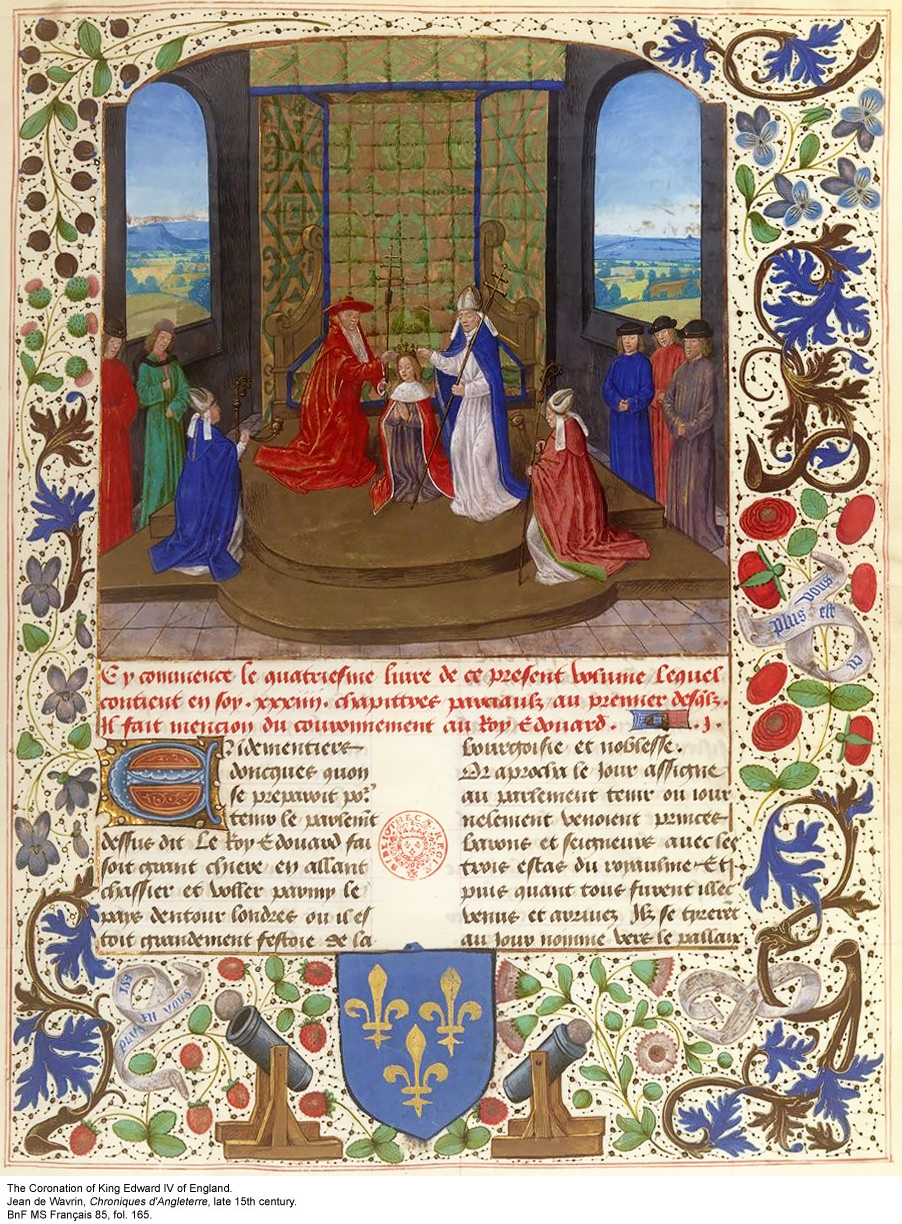 Cy commence le quatriesme livre de ce present volume Lequel
contient en soy . xxxiiij . chapittres parciaulz au premier desqlz .
Il fait mention du couronnement au Roy Edouard . .j.
Endementiers
doncques quon
se preparoit por
tenir le parlemt
dessus dit Le Roy Edouard fai
soit grant chiere en allant
chassier et voller parmy le
pays dentour londres ou il es
toit grandement festoie de la
bourgoisie et noblesse .
Or aprocha le jour assigne
au parlement tenir ou jour
nelement venoient princes
barons et seigneurs avec les
trois estas du royaulme Et
puis quant tous furent illec
venus et arrivez Ilz se tyrerent
au jour nomme vers le pallaix
plus est
en vous
EST
PLUS EN VOUS
BIBLIOTHECAE REGIAE
The Coronation of King Edward IV of England.
Jean de Wavrin, Chroniques d'Angleterre, late 15th century.
BnF MS Français 85, fol. 165.